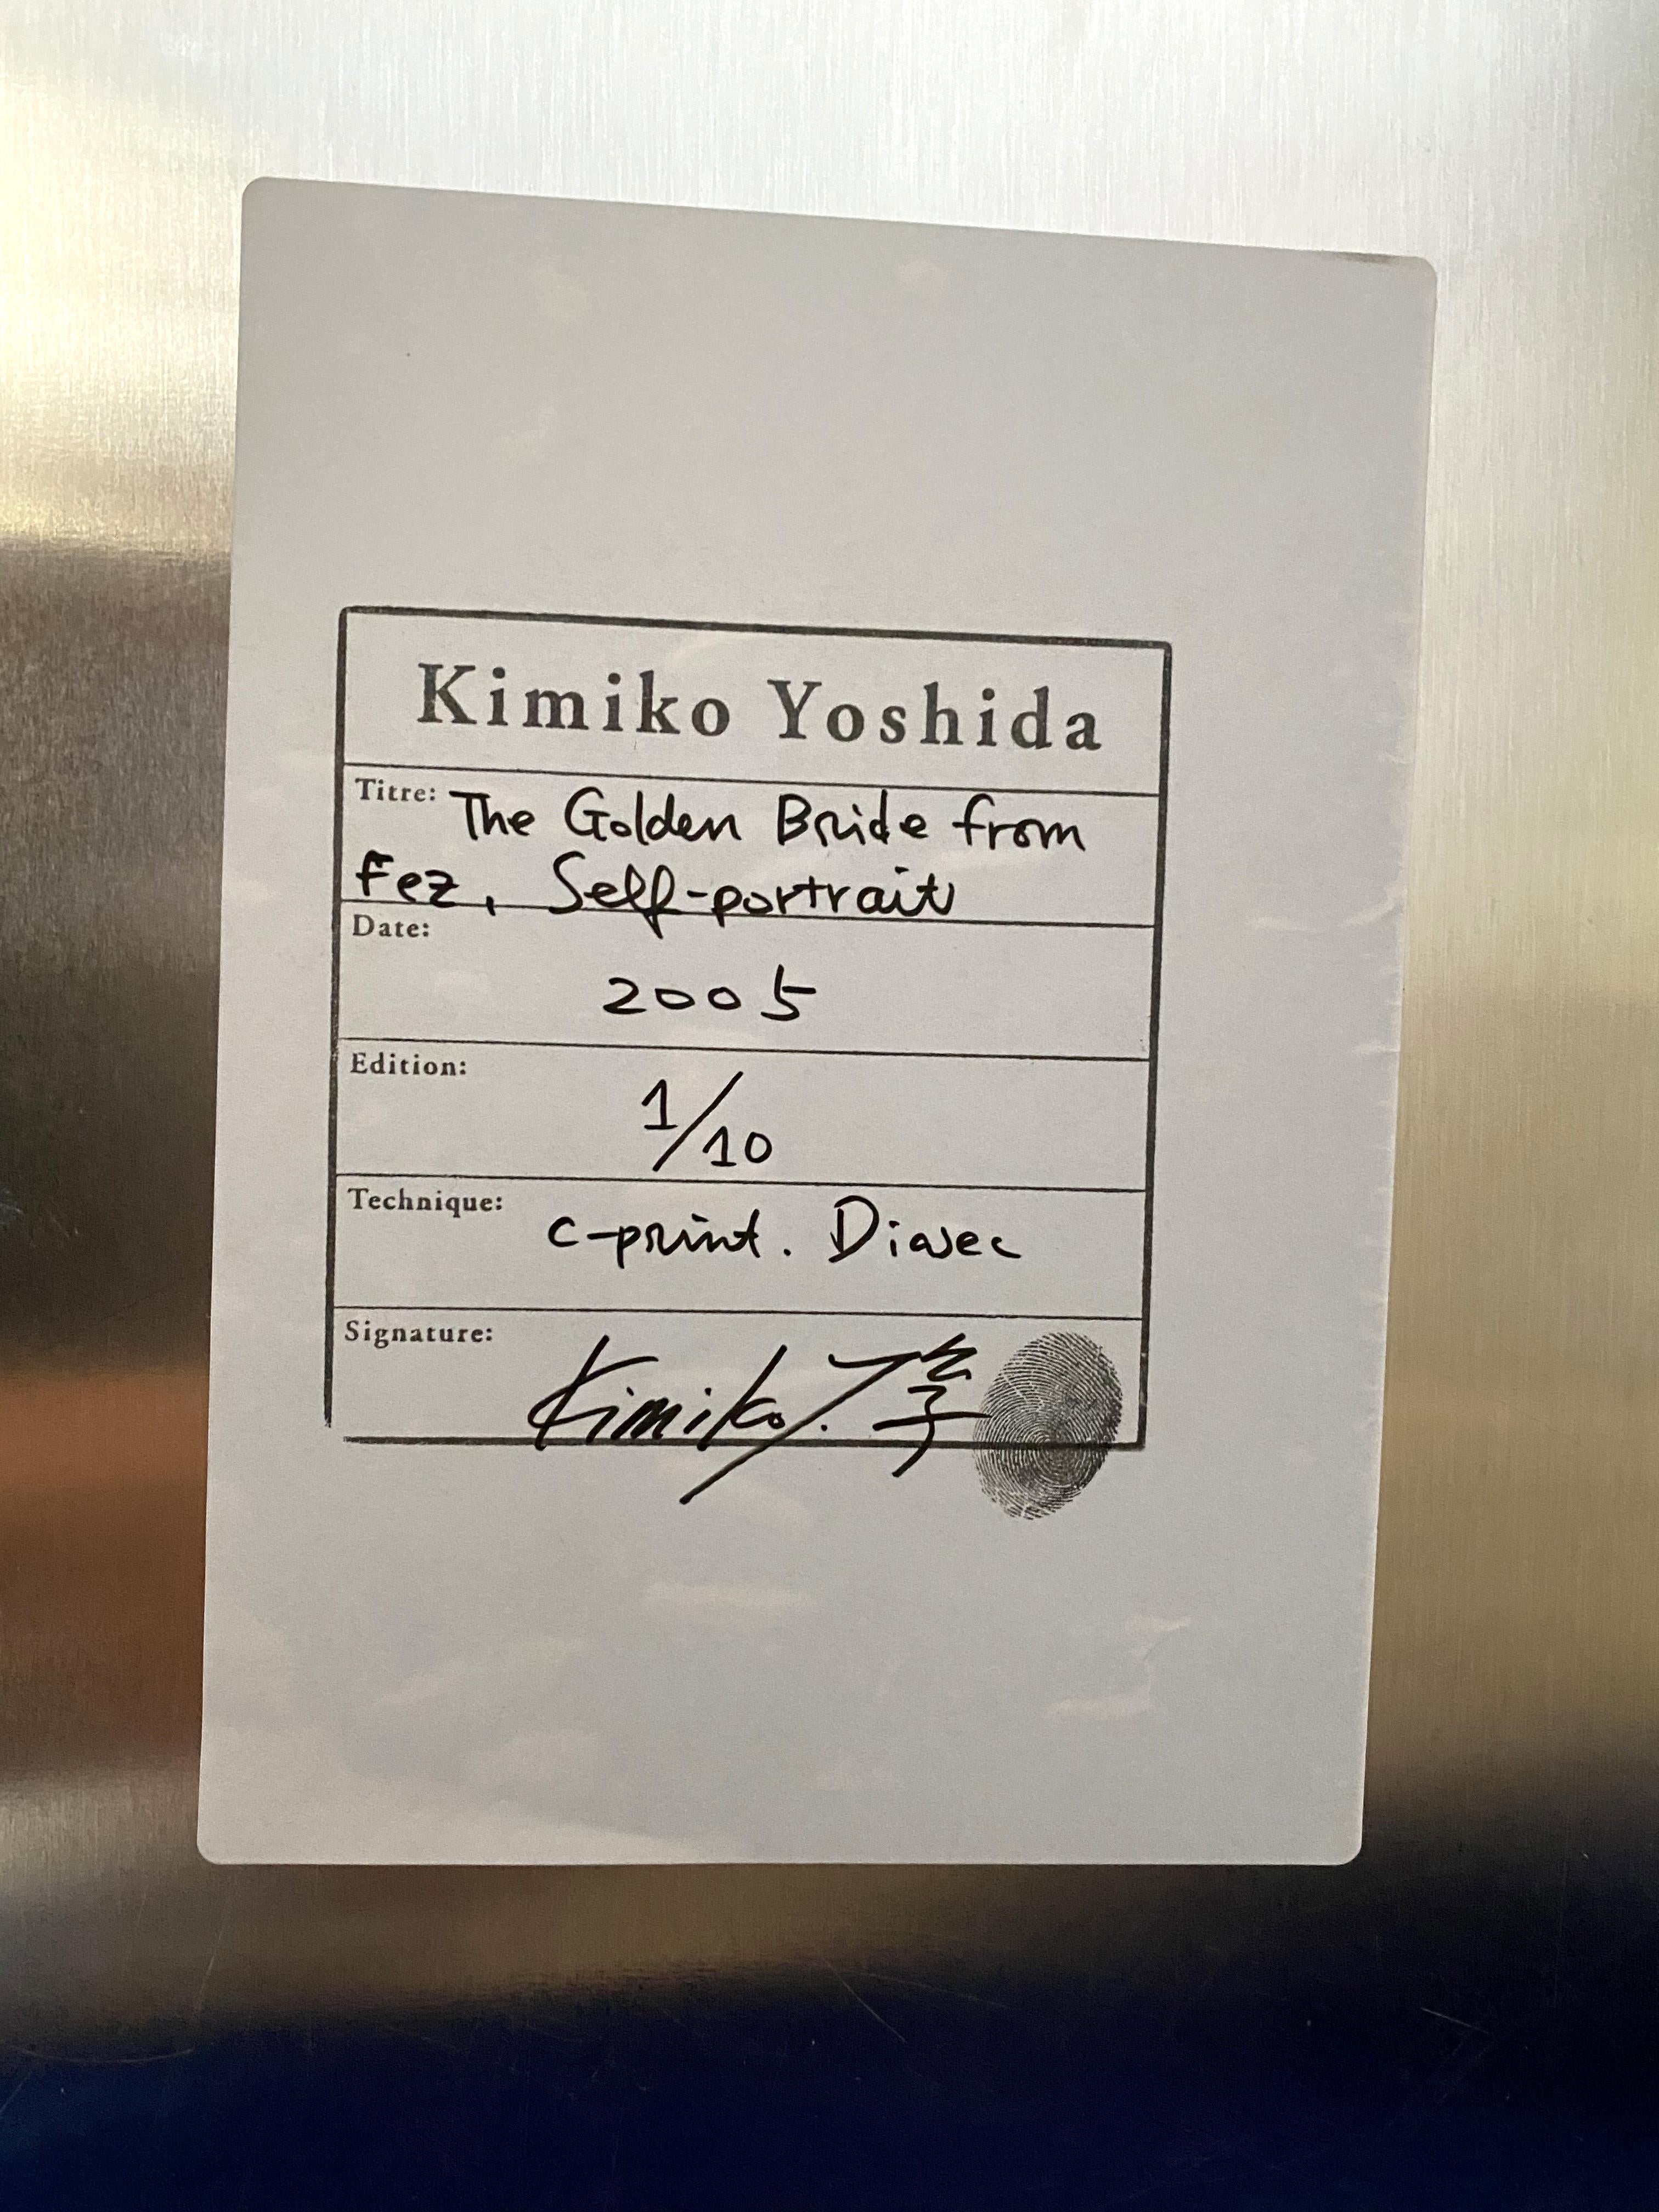 Kimiko Yoshida
Titre: The Golden Bride from
Fez, Self-portrait
Date:
2005
Edition:
1/10
Technique: c-print. Diasec
Signature:
Kimiko Y.